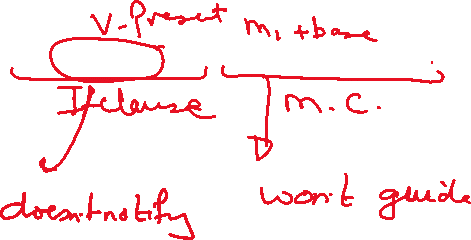 V-Present M1 + base
If clause M.C.
doesn't notify won't guide